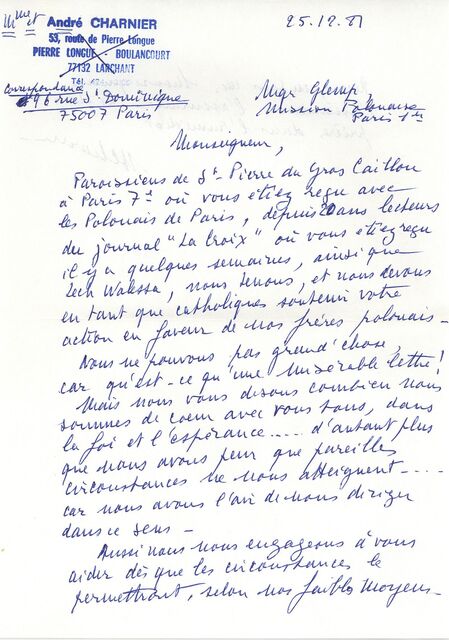 Mme et André CHARNIER
25.12.81
53, route de Pierre Longue
PIERRE LONGUE BOULANCOURT
77132 LARCHANT
Correspondance
96 rue St Dominique
75007 Paris
Mgr Glemp,
Mission Polonaise
Paris 1er
Monseigneur,
Paroissiens de St Pierre du Gros Caillou
à Paris 7e où vous étiez reçu avec
les Polonais de Paris, depuis 20 ans lecteurs
du journal "La Croix" où vous étiez reçu
il y a quelques semaines, ainsi que
Lech Walessa, nous tenons, et nous devons
en tant que catholiques soutenir votre
action en faveur de nos frères polonais -
Nous ne pouvons pas grand'chose,
car qu'est-ce qu'une misérable lettre !
Mais nous vous disons combien nous
sommes de coeur avec vous tous, dans
la foi et l'espérance ..... d'autant plus
que nous avons peur que pareilles
circonstances ne nous atteignent ....
car nous avons l'air de nous diriger
dans ce sens -
Aussi nous nous engageons à vous
aider dès que les circonstances le
permettront, selon nos faibles moyens -